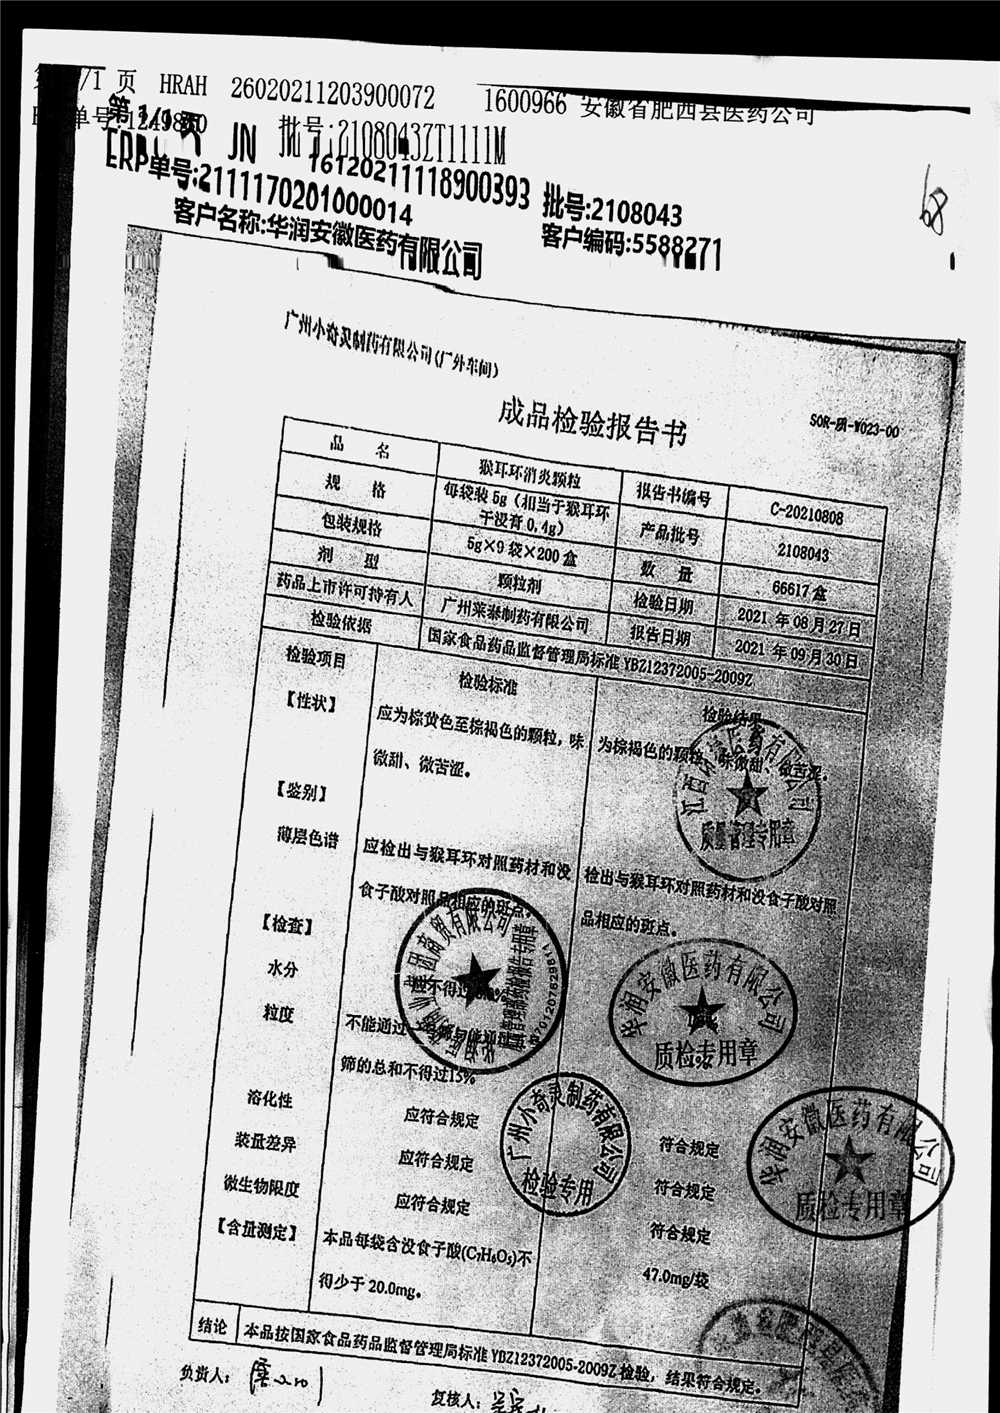 1 页 HRAH 26020211203900072 1600966 安徽省肥西县医药公司
第 1/1 页 JN 批号:2108043ZT1111M
161202111118900393 批号:2108043
ERP单号:2111170201000014 客户编码:5588271
客户名称:华润安徽医药有限公司
68
广州小奇灵制药有限公司(厂外车间)
成品检验报告书 SOR-质-W023-00
品 名 猴耳环消炎颗粒 报告书编号 C-20210808
规 格 每袋装 5g（相当于猴耳环干浸膏 0.4g） 产品批号 2108043
包装规格 5g×9 袋×200 盒 数 量 66617 盒
剂 型 颗粒剂 检验日期 2021 年 08 月 27 日
药品上市许可持有人 广州莱泰制药有限公司 报告日期 2021 年 09 月 30 日
检验依据 国家食品药品监督管理局标准 YBZ12372005-2009Z
检验项目 检验标准 检验结果
【性状】 应为棕黄色至棕褐色的颗粒，味 为棕褐色的颗粒，味微甜、微苦涩。
微甜、微苦涩。
【鉴别】
薄层色谱 应检出与猴耳环对照药材和没 检出与猴耳环对照药材和没食子酸对照
食子酸对照品相应的斑点。 品相应的斑点。
【检查】
水分 应不得过
粒度 不能通过一号筛与能通过
筛的总和不得过15%
溶化性 应符合规定 符合规定
装量差异 应符合规定 符合规定
微生物限度 应符合规定 符合规定
【含量测定】 本品每袋含没食子酸(C₇H₆O₅)不 47.0mg/袋
得少于 20.0mg。
结论 本品按国家食品药品监督管理局标准 YBZ12372005-2009Z 检验，结果符合规定。
负责人： 复核人：
医药有限公司
质量管理专用章
商贸有限公司
3701207629811
华润安徽医药有限公司
质检专用章
广州小奇灵制药有限公司
检验专用
华润安徽医药有限公司
质检专用章